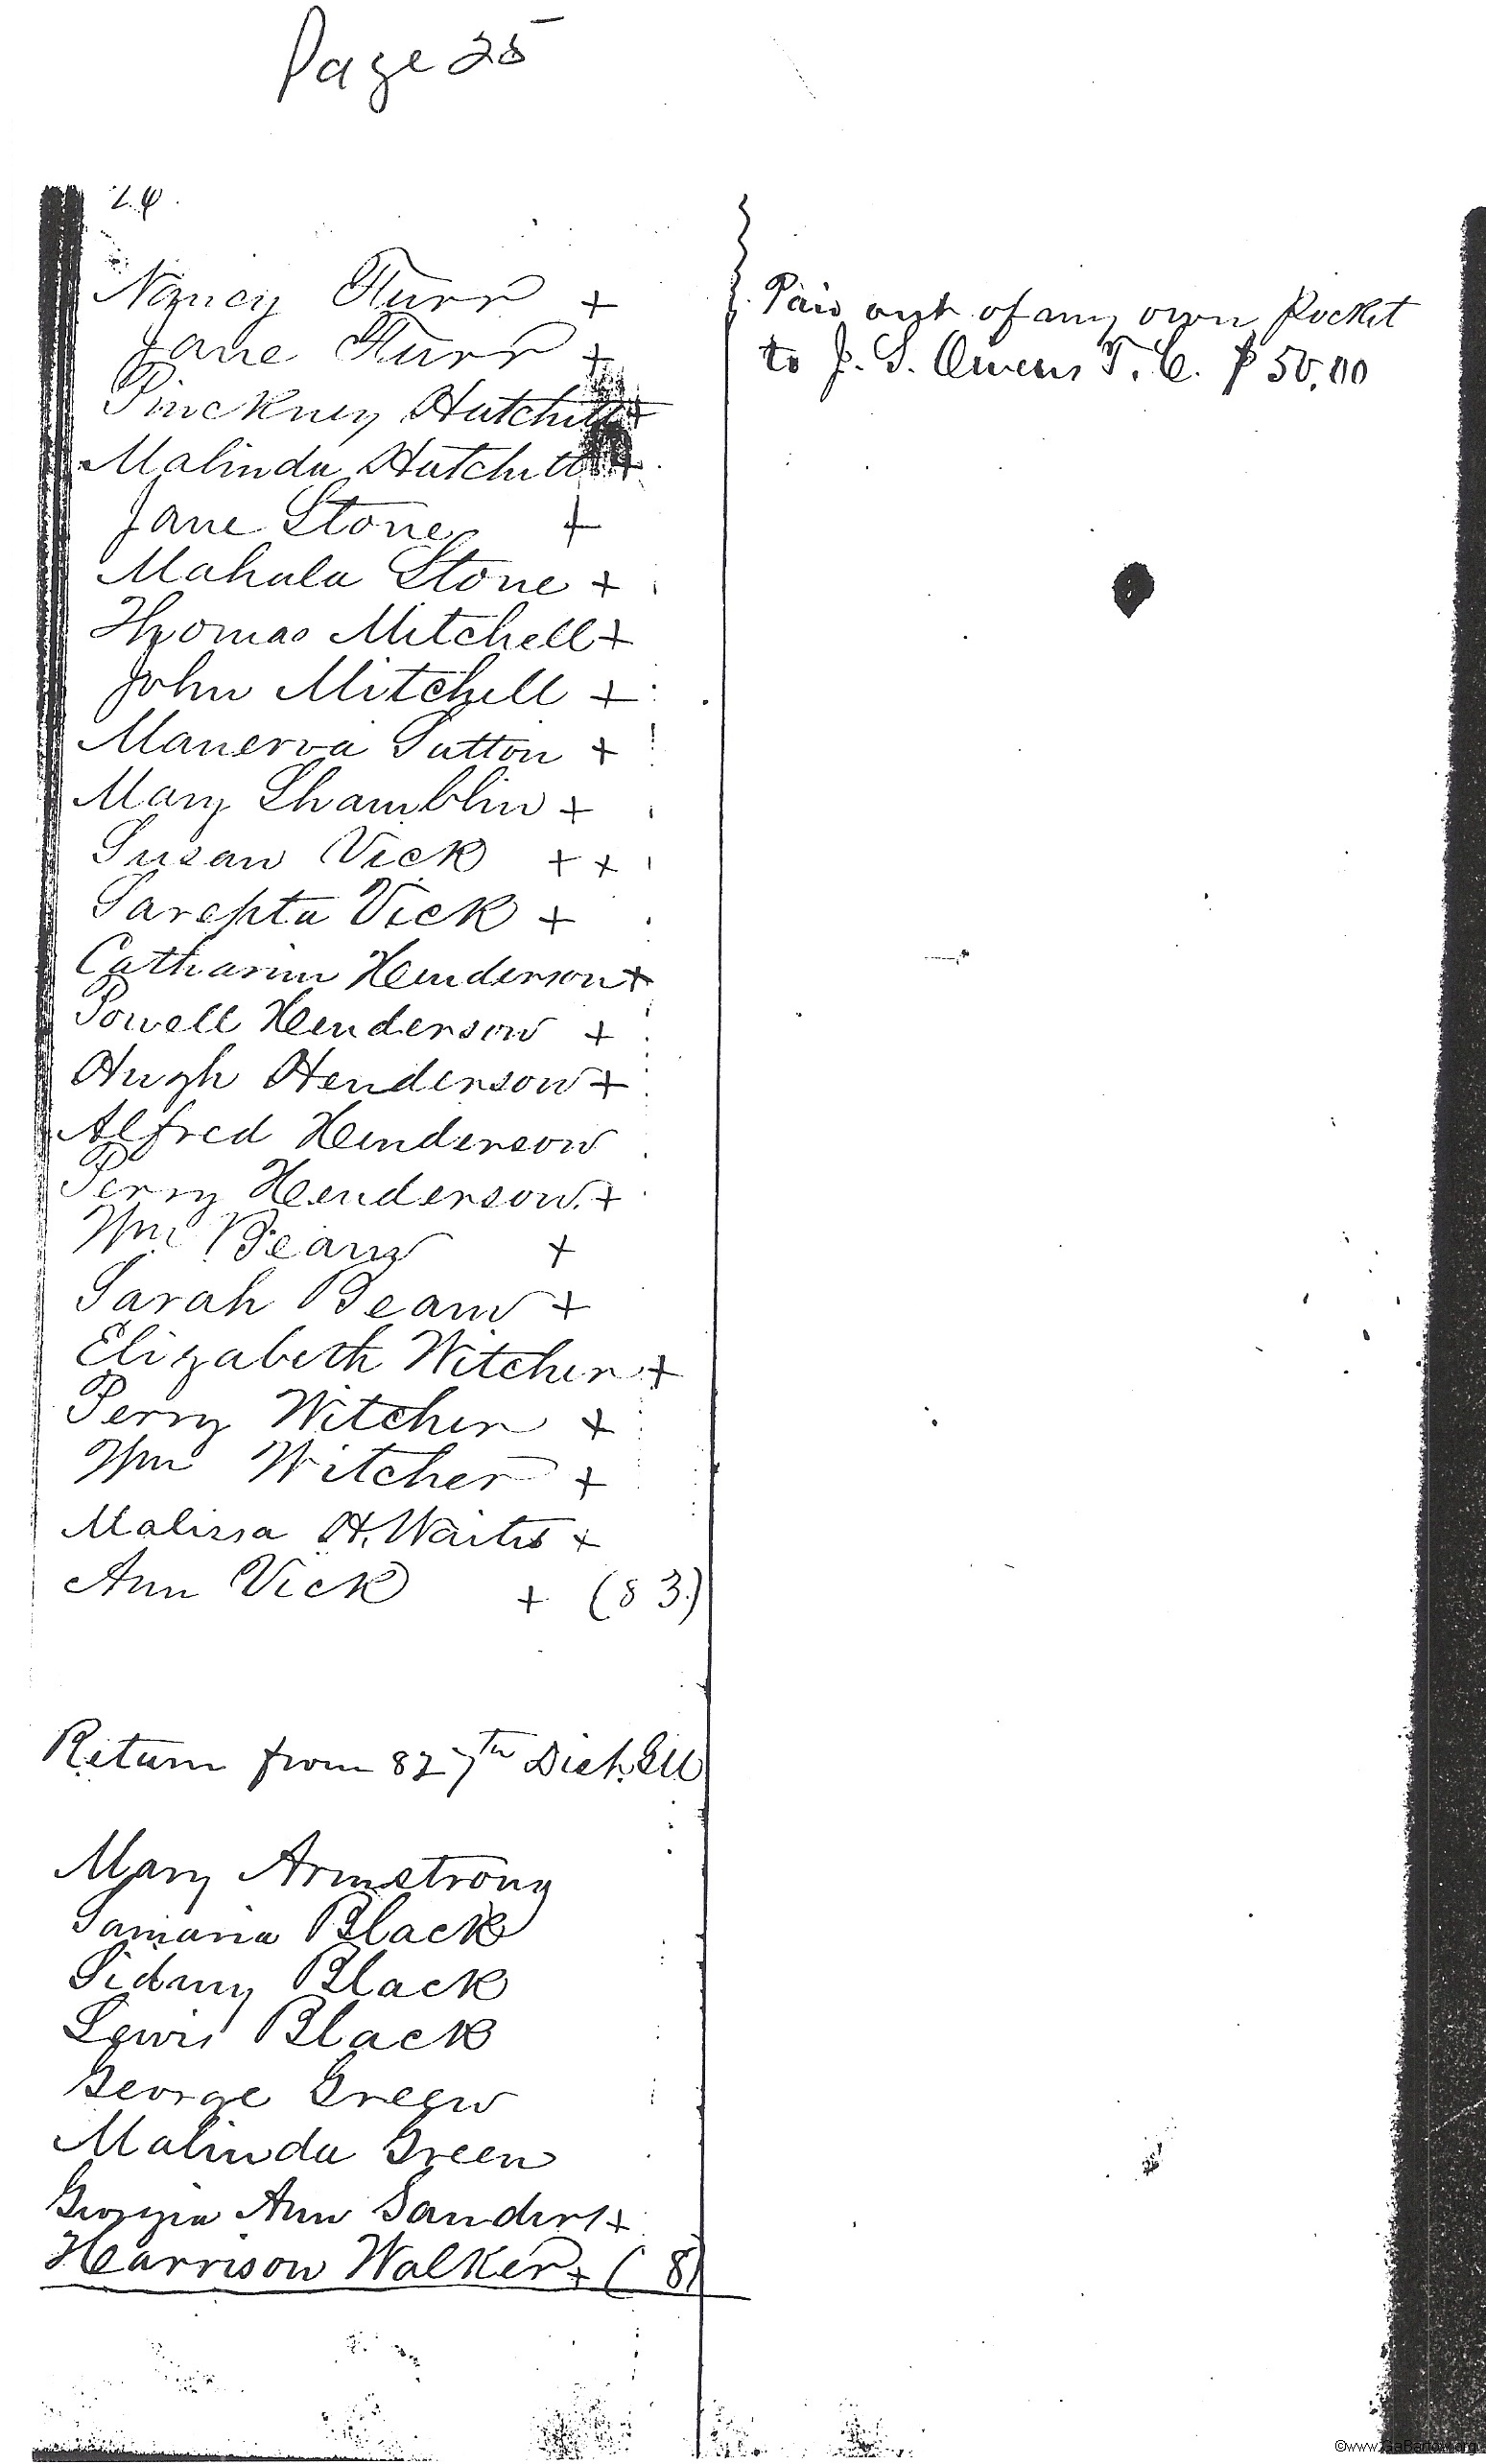 Page 25
24
Nancy Furr +
Jane Furr +
Pinckney Hutchitt +
Malinda Hutchitt +
Jane Stone +
Mahala Stone +
Thomas Mitchell +
John Mitchell +
Manerva Sutton +
Mary Shamblin +
Susan Vick + +
Sarepta Vick +
Catharin Henderson +
Powell Henderson +
Hugh Henderson +
Alfred Henderson
Perry Henderson +
Wm Beam +
Sarah Beam +
Elizabeth Witcher +
Perry Witcher +
Wm Witcher +
Malissa H. Waits +
Ann Vick + (83)
Return from 827th Dist. GM
Mary Armstrong
Samaria Black
Sidney Black
Lewis Black
George Green
Malinda Green
Georgia Ann Sanders +
Harrison Walker + (8)
Paid out of my own Pocket
to J. S. Owens T. C. $50.00
©www.GaBartow.org